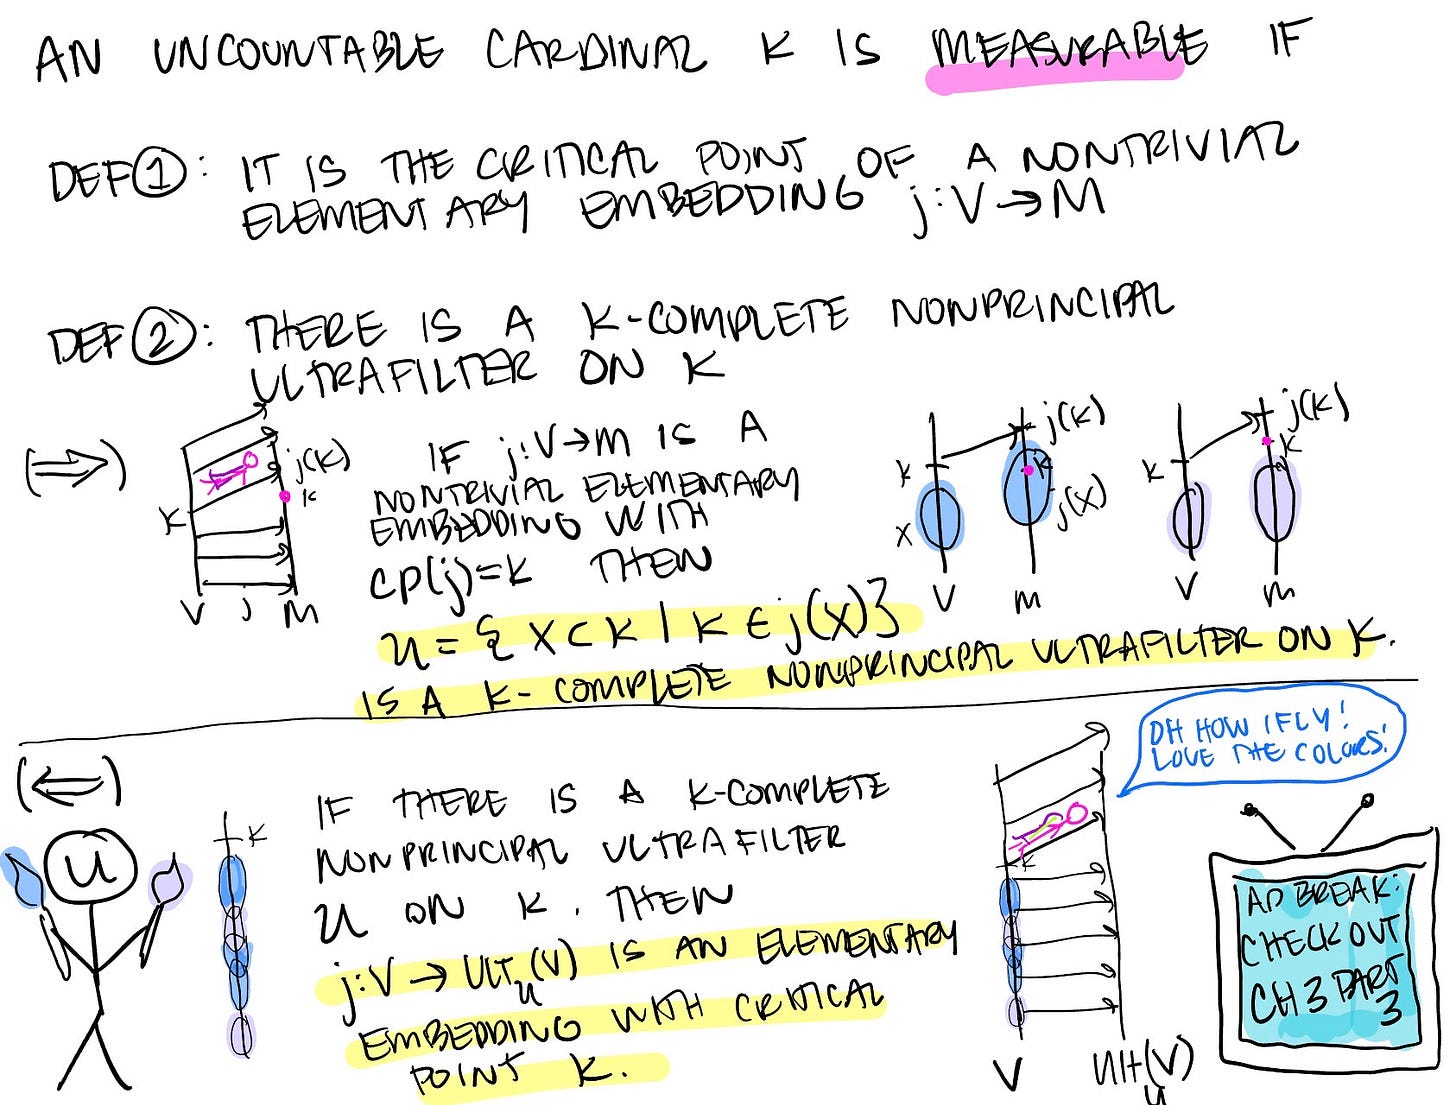 AN UNCOUNTABLE CARDINAL K IS MEASURABLE IF
DEF ①: IT IS THE CRITICAL POINT OF A NONTRIVIAL
ELEMENTARY EMBEDDING j:V→M
DEF ②: THERE IS A K-COMPLETE NONPRINCIPAL
ULTRAFILTER ON K
(⇒)
j(K)
K
K
V j M
IF j:V→M IS A
NONTRIVIAL ELEMENTARY
EMBEDDING WITH
CP(j)=K THEN
U = { X ⊂ K | K ∈ j(X) }
IS A K-COMPLETE NONPRINCIPAL ULTRAFILTER ON K.
j(K)
K
K
X
j(X)
V M
j(K)
K
K
V M
(⇐)
U
K
IF THERE IS A K-COMPLETE
NONPRINCIPAL ULTRAFILTER
U ON K, THEN
j:V→ULT_U(V) IS AN ELEMENTARY
EMBEDDING WITH CRITICAL
POINT K.
K
V Ult_U(V)
OH HOW I FLY!
LOVE THE COLORS!
AD BREAK:
CHECK OUT
CH 3 PART
3